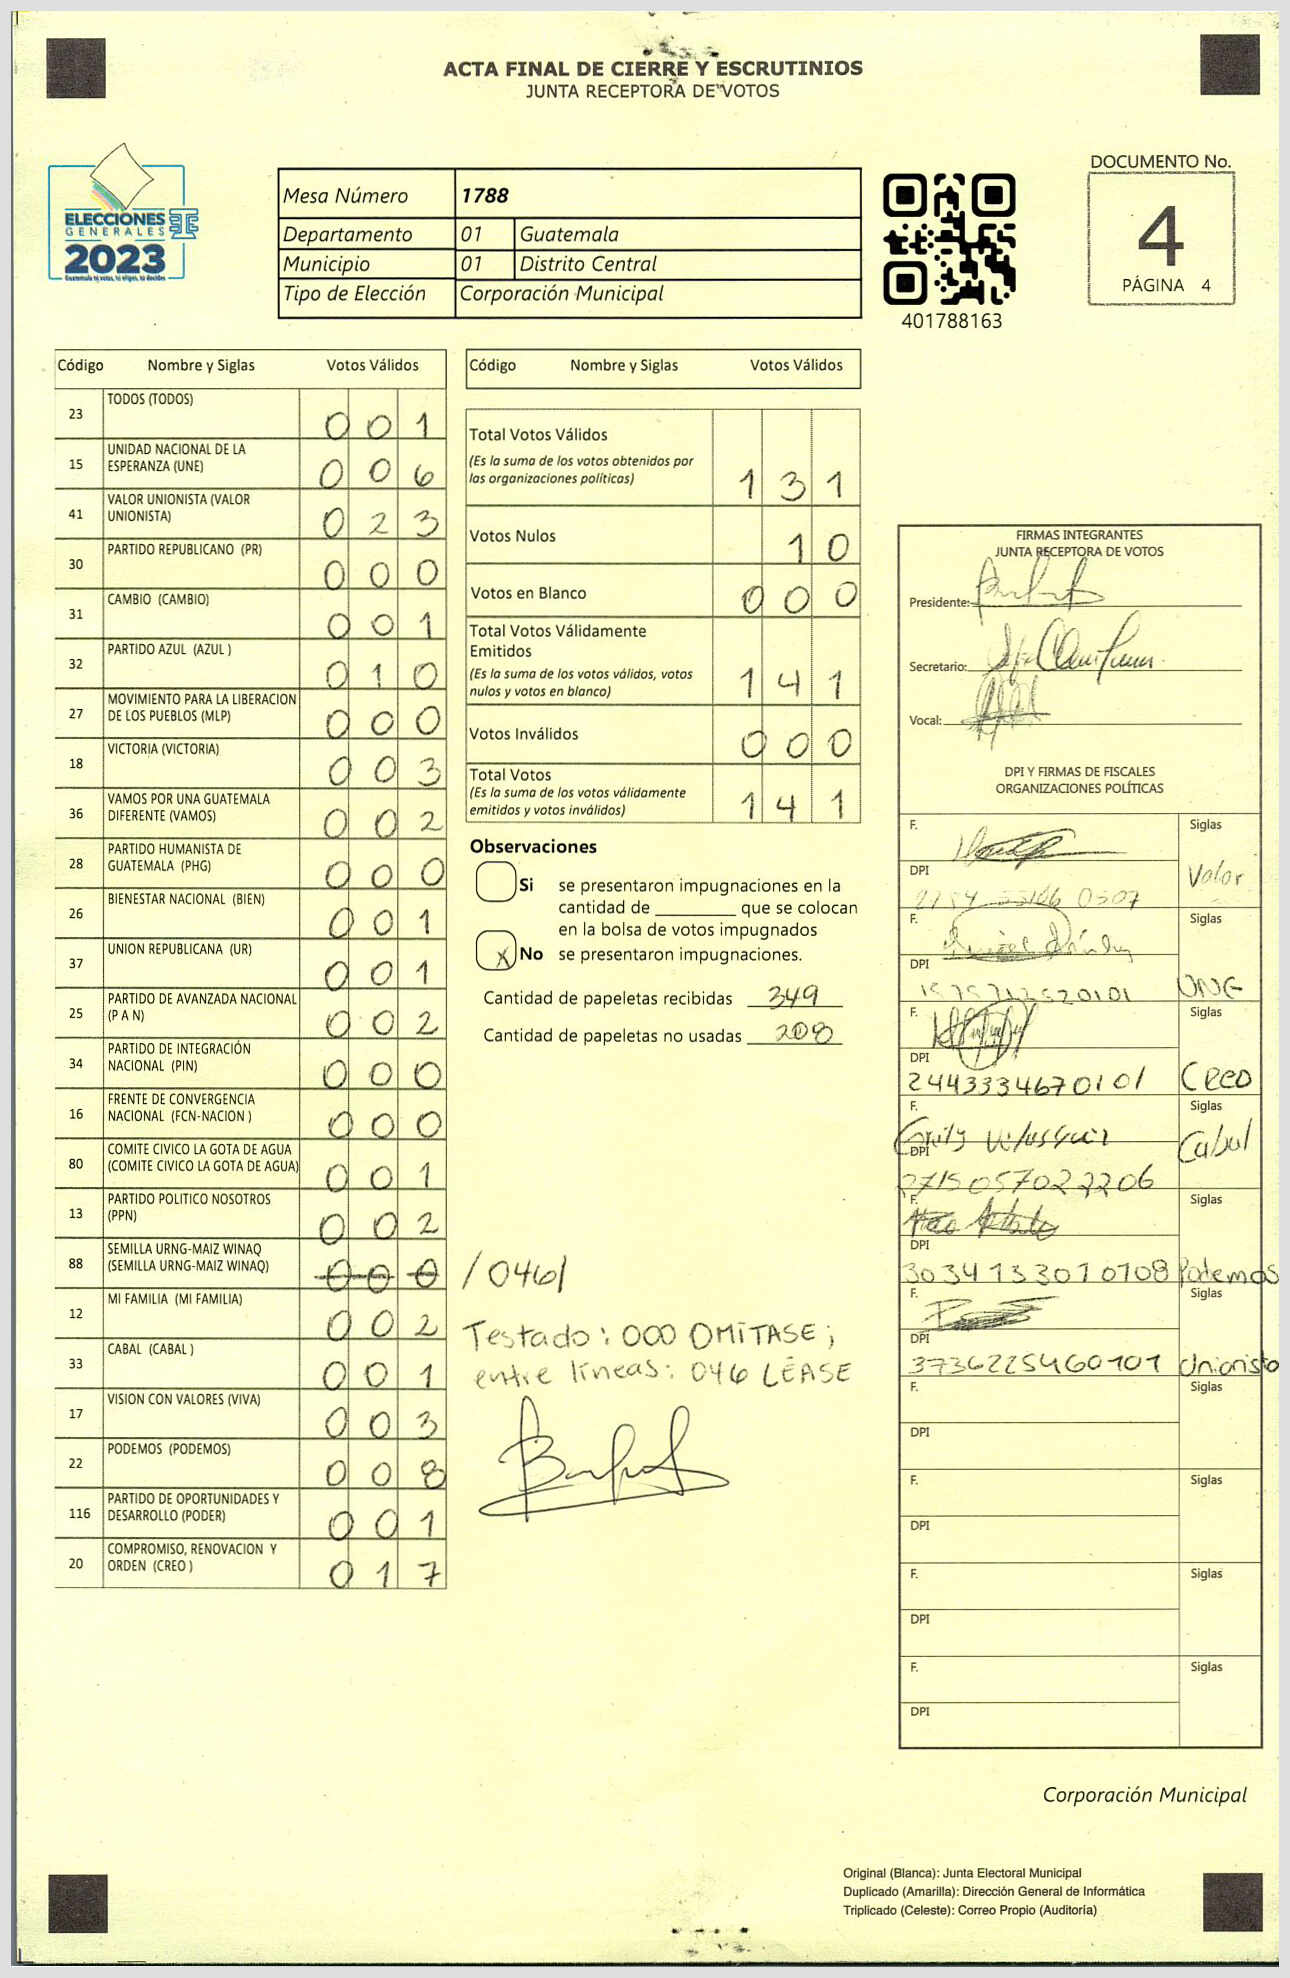 ACTA FINAL DE CIERRE Y ESCRUTINIOS
JUNTA RECEPTORA DE VOTOS
ELECCIONES
GENERALES
2023
Guatemala tú votas, tú eliges, tú decides
Mesa Número 1788
Departamento 01 Guatemala
Municipio 01 Distrito Central
Tipo de Elección Corporación Municipal
401788163
DOCUMENTO No.
4
PÁGINA 4
Código Nombre y Siglas Votos Válidos
23 TODOS (TODOS) 0 0 1
15 UNIDAD NACIONAL DE LA
ESPERANZA (UNE) 0 0 6
41 VALOR UNIONISTA (VALOR
UNIONISTA) 0 2 3
30 PARTIDO REPUBLICANO (PR) 0 0 0
31 CAMBIO (CAMBIO) 0 0 1
32 PARTIDO AZUL (AZUL ) 0 1 0
27 MOVIMIENTO PARA LA LIBERACION
DE LOS PUEBLOS (MLP) 0 0 0
18 VICTORIA (VICTORIA) 0 0 3
36 VAMOS POR UNA GUATEMALA
DIFERENTE (VAMOS) 0 0 2
28 PARTIDO HUMANISTA DE
GUATEMALA (PHG) 0 0 0
26 BIENESTAR NACIONAL (BIEN) 0 0 1
37 UNION REPUBLICANA (UR) 0 0 1
25 PARTIDO DE AVANZADA NACIONAL
(P A N) 0 0 2
34 PARTIDO DE INTEGRACIÓN
NACIONAL (PIN) 0 0 0
16 FRENTE DE CONVERGENCIA
NACIONAL (FCN-NACION ) 0 0 0
80 COMITE CIVICO LA GOTA DE AGUA
(COMITE CIVICO LA GOTA DE AGUA) 0 0 1
13 PARTIDO POLITICO NOSOTROS
(PPN) 0 0 2
88 SEMILLA URNG-MAIZ WINAQ
(SEMILLA URNG-MAIZ WINAQ) 0 0 0 /046/
12 MI FAMILIA (MI FAMILIA) 0 0 2
33 CABAL (CABAL ) 0 0 1
17 VISION CON VALORES (VIVA) 0 0 3
22 PODEMOS (PODEMOS) 0 0 8
116 PARTIDO DE OPORTUNIDADES Y
DESARROLLO (PODER) 0 0 1
20 COMPROMISO, RENOVACION Y
ORDEN (CREO ) 0 1 7
Código Nombre y Siglas Votos Válidos
Total Votos Válidos
(Es la suma de los votos obtenidos por
las organizaciones políticas) 1 3 1
Votos Nulos 1 0
Votos en Blanco 0 0 0
Total Votos Válidamente
Emitidos
(Es la suma de los votos válidos, votos
nulos y votos en blanco) 1 4 1
Votos Inválidos 0 0 0
Total Votos
(Es la suma de los votos válidamente
emitidos y votos inválidos) 1 4 1
Observaciones
Si se presentaron impugnaciones en la
cantidad de ________ que se colocan
en la bolsa de votos impugnados
X No se presentaron impugnaciones.
Cantidad de papeletas recibidas 349
Cantidad de papeletas no usadas 208
Testado: 000 OMITASE;
entre líneas: 046 LÉASE
FIRMAS INTEGRANTES
JUNTA RECEPTORA DE VOTOS
Presidente:
Secretario:
Vocal:
DPI Y FIRMAS DE FISCALES
ORGANIZACIONES POLÍTICAS
F. Siglas
DPI Valor
0507
F. Siglas
DPI UNE
F. Siglas
DPI
2443334670101 Creo
F. Siglas
DPI Cabal
2715057022206
F. Siglas
DPI
3034133010108 Podemos
F. Siglas
DPI
3736225460101 Unionista
F. Siglas
DPI
F. Siglas
DPI
F. Siglas
DPI
F. Siglas
DPI
Corporación Municipal
Original (Blanca): Junta Electoral Municipal
Duplicado (Amarilla): Dirección General de Informática
Triplicado (Celeste): Correo Propio (Auditoría)